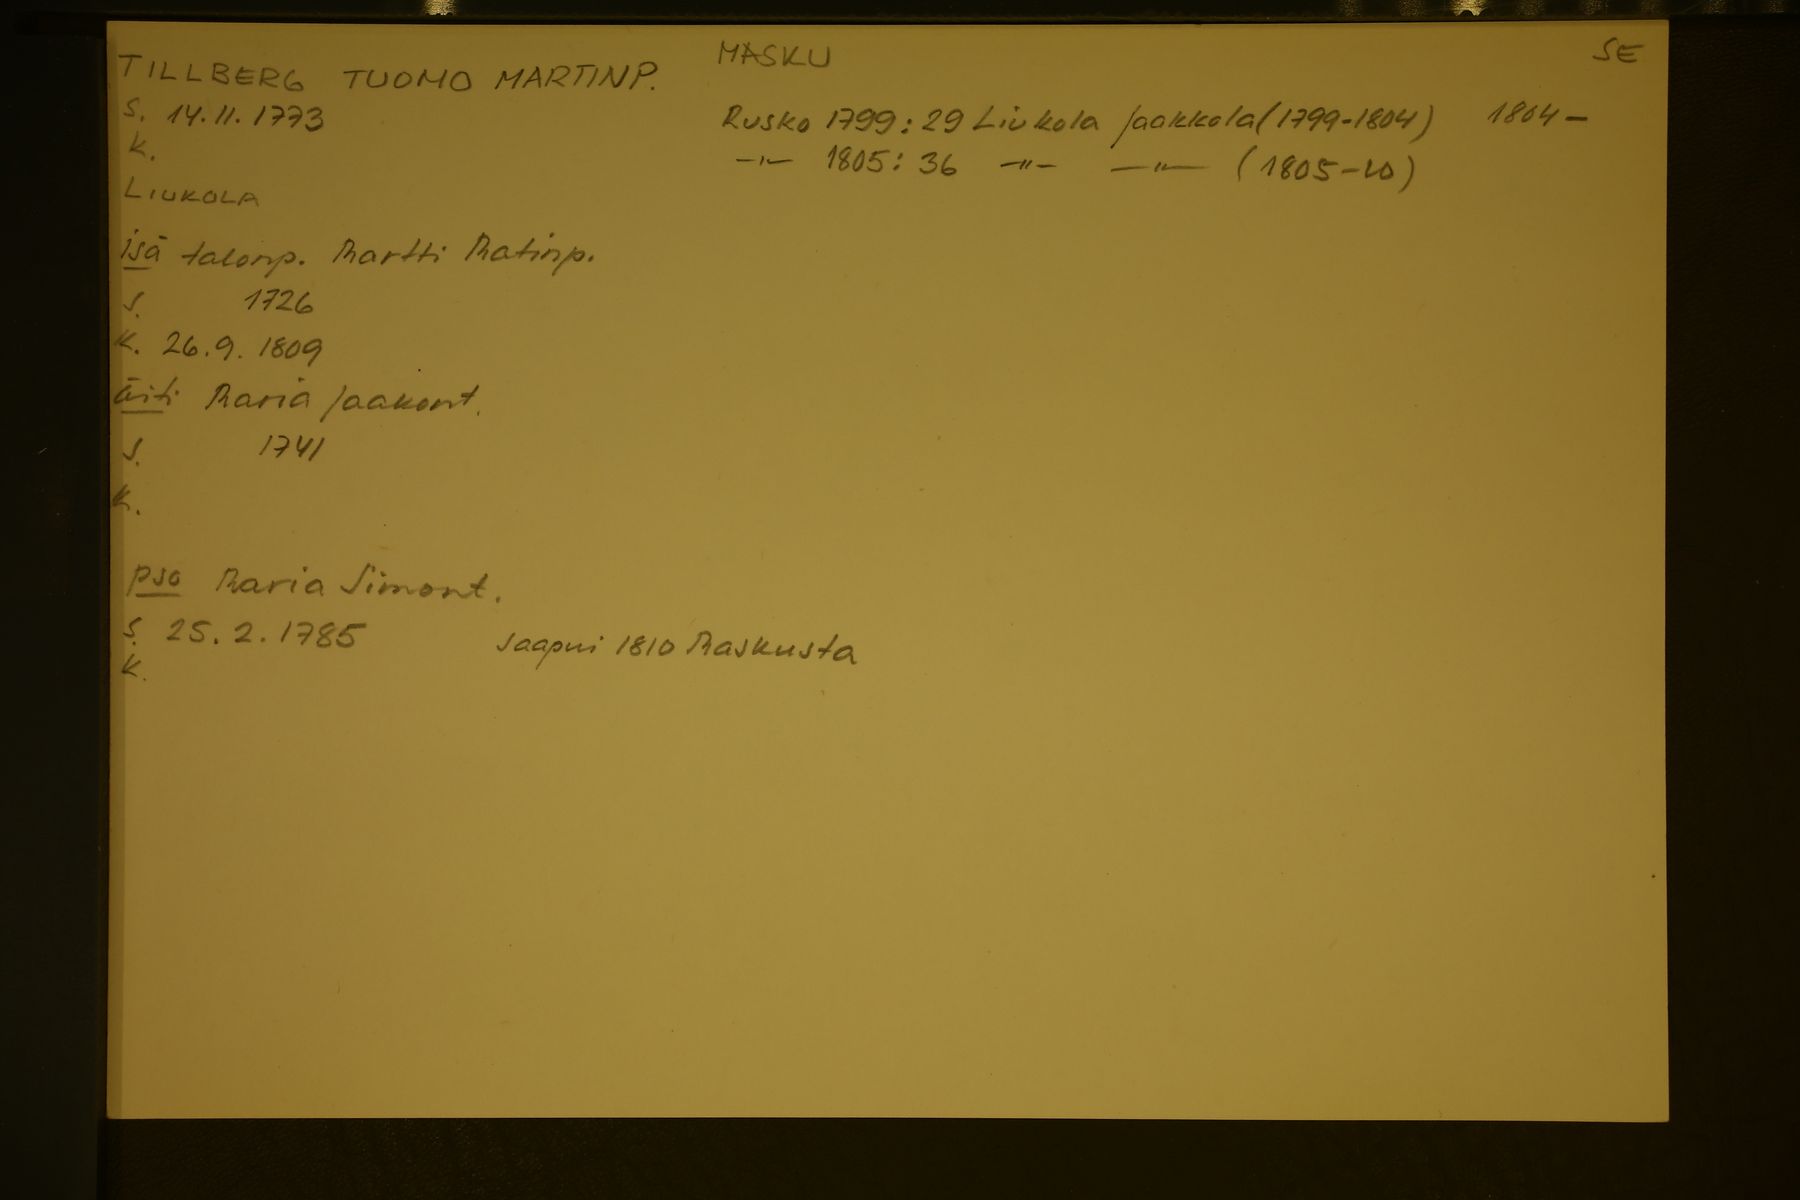 TILLBERG TUOMO MARTINP. MASKU SE
S. 14.11.1773 Rusko 1799: 29 Liukola Jaakkola (1799-1804) 1804-
K. -"- 1805: 36 -"- -"- (1805-10)
LIUKOLA
isä talonp. Martti Matinp.
s. 1726
K. 26.9. 1809
äiti Maria Jaakont.
s. 1741
K.
pso Maria Simont.
s. 25.2.1785 saapui 1810 Maskusta
K.